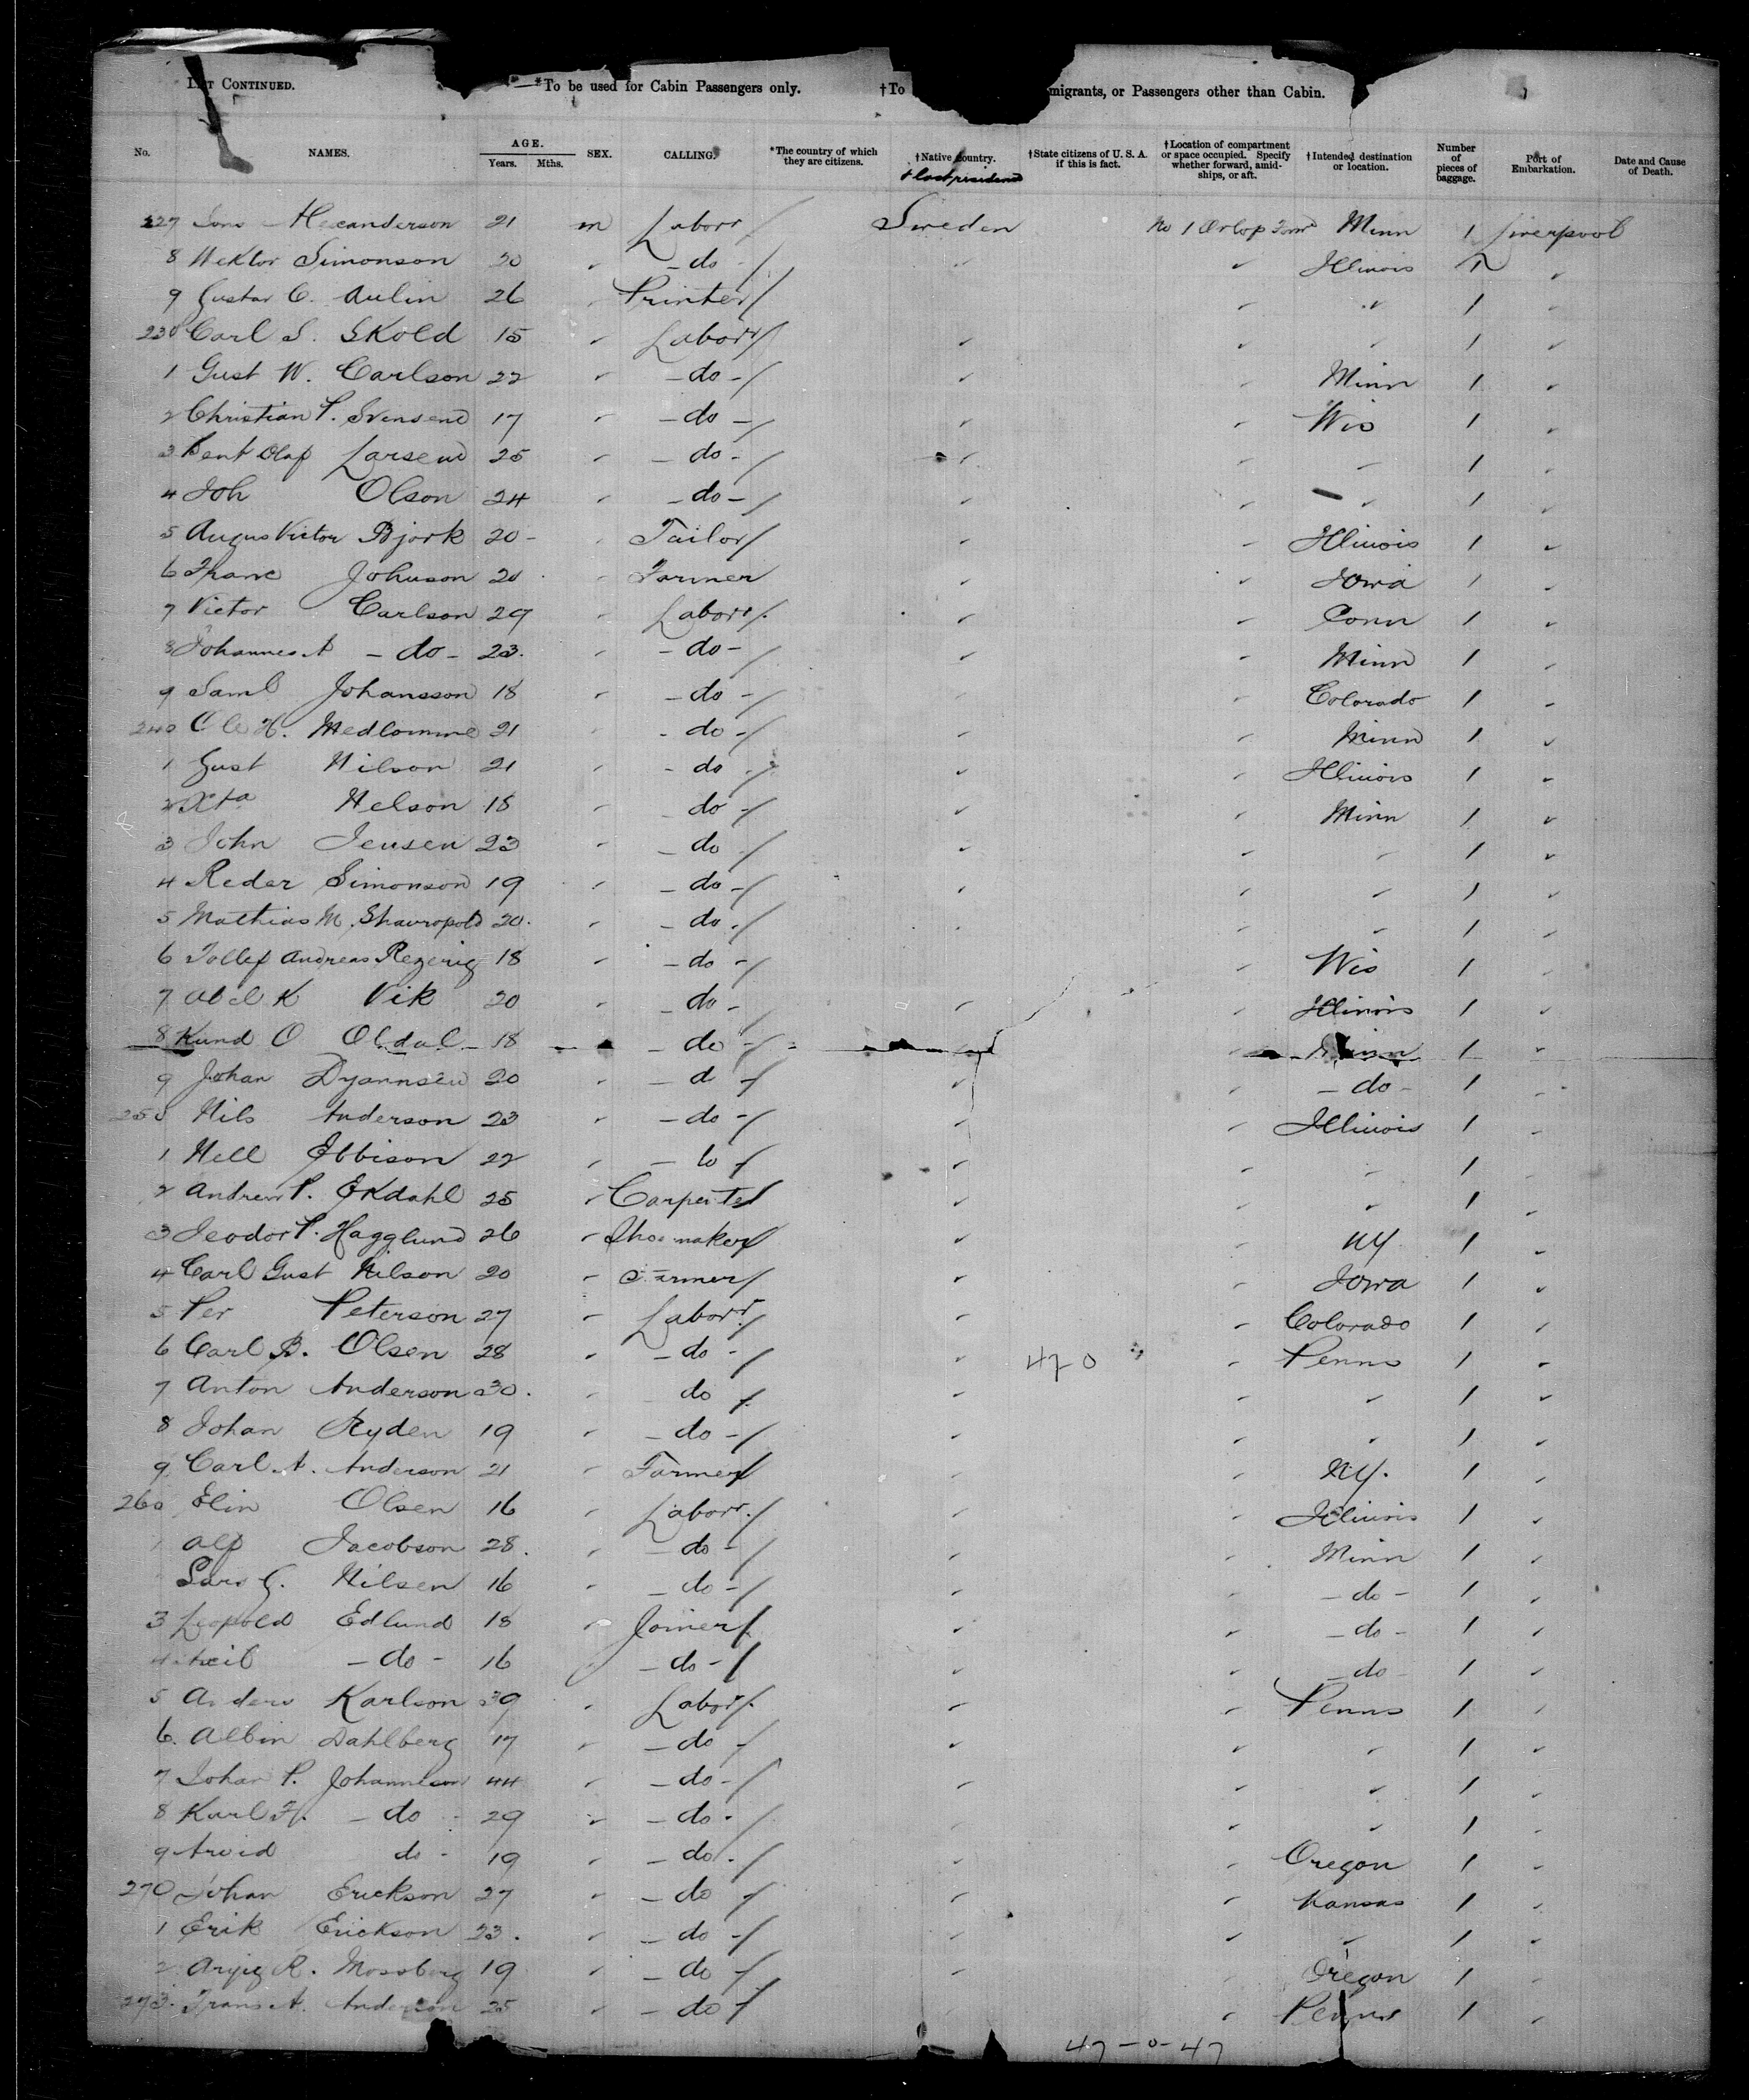 List Continued. *To be used for Cabin Passengers only. †To migrants, or Passengers other than Cabin.
No. NAMES. AGE. Years. Mths. SEX. CALLING. *The country of which they are citizens. †Native country. & last residence †State citizens of U. S. A. if this is fact. †Location of compartment or space occupied. Specify whether forward, amidships, or aft. †Intended destination or location. Number of pieces of baggage. Port of Embarkation. Date and Cause of Death.
227 21 m Laborr Sweden No 1 Orlop Minn 1 Liverpool
8 Hektor Simonson 20 - do Illinois 1
9 Gustav C. Aulin 26 Printer " 1
230 Carl S. Skold 15 Laborr " 1
1 Gust W. Carlson 22 - do - Minn 1
2 Christian P. Svensend 17 - do - Wis 1
3 Bent Olaf Larsend 25 - do - " 1
4 Joh Olson 24 - do - " 1
5 Augus Victor Bjork 20 - Tailor Illinois 1
6 Franc Johnson 20 Farmer Iowa 1
7 Victor Carlson 29 Laborr Conn 1
8 Johannes A - do - 23. - do - Minn 1
9 Saml Johansson 18 - do - Colorado 1
240 Ole H. 21 - do - Minn 1
1 Gust Nilson 21 - do - Illinois 1
2 Xta Nelson 18 - do - Minn 1
3 John Jensen 23 - do " 1
4 Reder Simonson 19 - do - " 1
5 Mathias M. 20. - do - " 1
6 Tollef Andreas 18 - do - Wis 1
7 Abel K Vik 20 - do - Illinois 1
8 Kund O Oldal 18 - do - Minn 1
9 Johan 20 - d - - do - 1
250 Nils Anderson 23 - do - Illinois 1
1 Nell Ebbison 22 - do " 1
2 Andrew P. Ekdahl 25 Carpenter " 1
3 Teodor P. Hagglund 26 Shoemaker NY 1
4 Carl Gust Nilson 20 Farmer Iowa 1
5 Per Peterson 27 Laborr Colorado 1
6 Carl B. Olsen 28 - do - 47 0 Penns 1
7 Anton Anderson 30. do - " 1
8 Johan Ryden 19 - do - " 1
9 Carl A. Anderson 21 Farmer NY. 1
260 Elin Olsen 16 Laborr. Illinois 1
1 Alf Jacobson 28. - do - Minn 1
Lars G. Nilsen 16 - do - - do - 1
3 Leopold Edlund 18 Joiner - do - 1
4 - do - 16 - do - - do - 1
5 Anders Karlson 39 Laborr. Penns 1
6. Albin Dahlberg 17 - do - " 1
7 Johan P. Johannleson 44 - do - " 1
8 Karl F. - do - 29 - do - " 1
9 Arvid do - 19 - do - Oregon 1
270 Johan Erickson 27 - do - Kansas 1
1 Erik Erickson 23. - do - " 1
2 R. Mossberg 19 - do - Oregon 1
273. Frans A. Anderson 25 - do - Penns 1
47 - 0 - 47